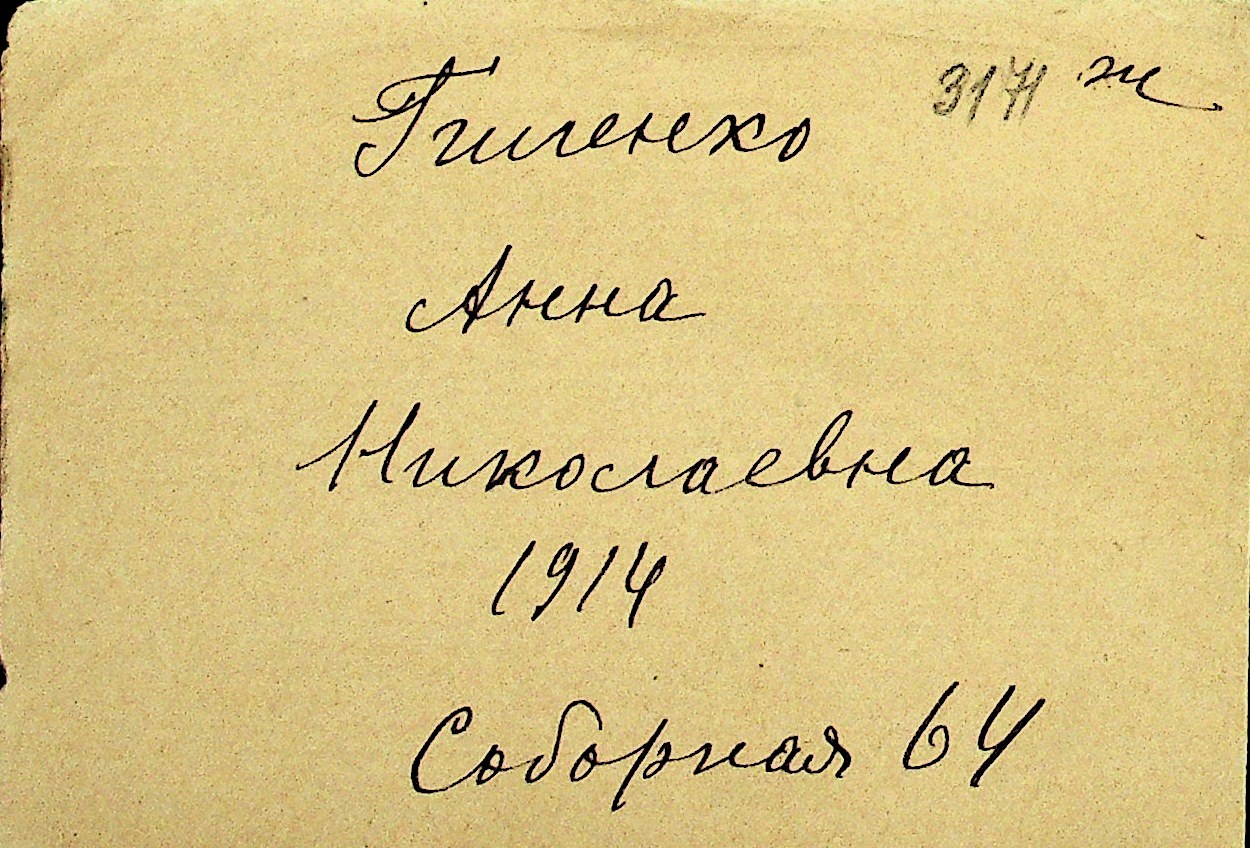 3171 ж
Гиленко
Анна
Николаевна
1914
Соборная 64